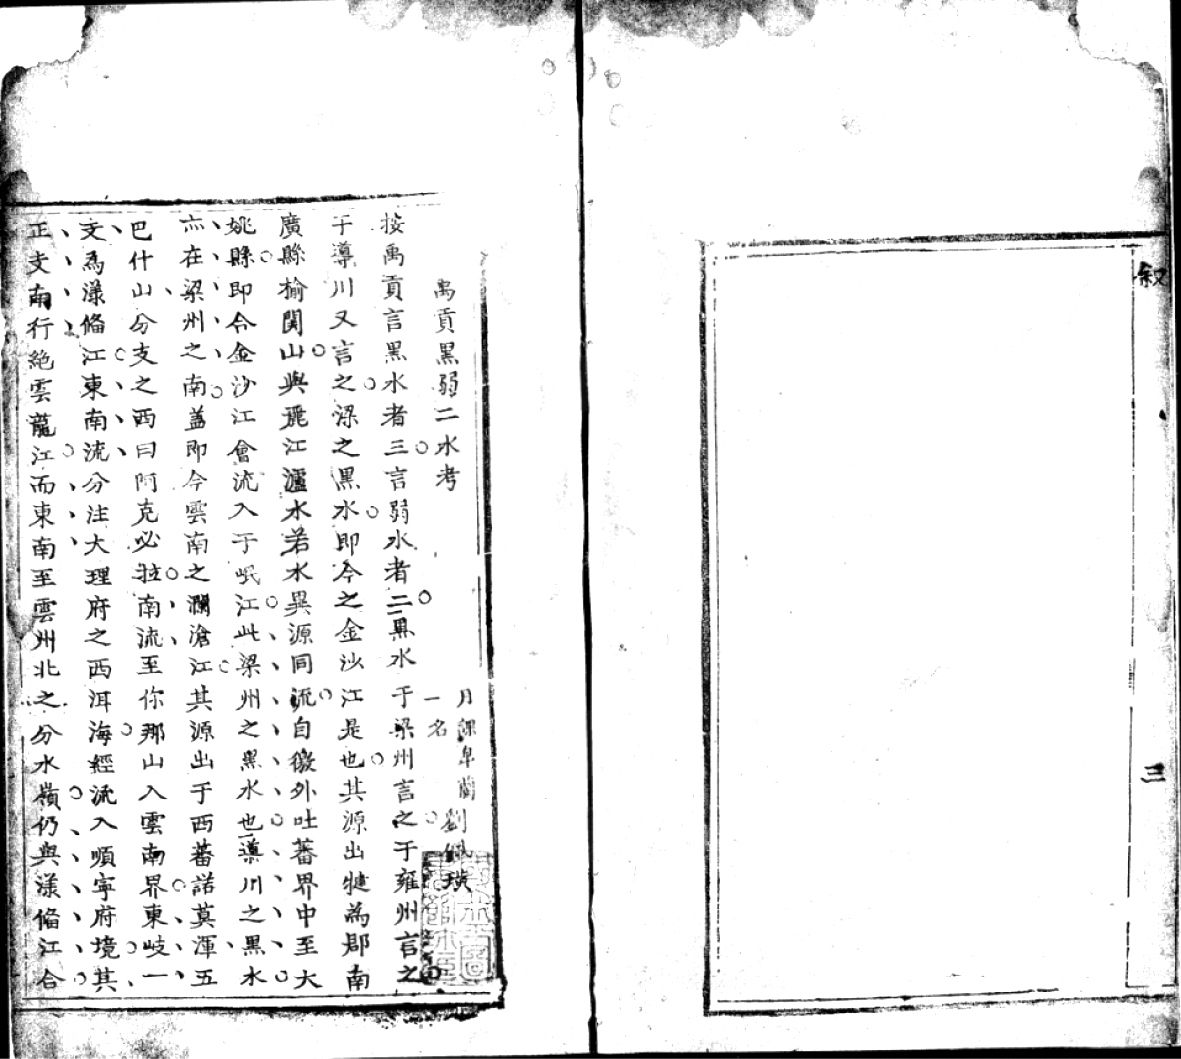 叙
三
禹貢黑弱二水考
月課皐蘭一名
劉佩璜
按禹貢言黑水者三言弱水者二黑水于梁州言之于雍州言之
于導川又言之梁之黑水即今之金沙江是也其源出犍為郡南
廣縣榆関山與麗江瀘水若水異源同流自徼外吐蕃界中至大
姚縣即今金沙江會流入于岷江此梁州之黑水也導川之黑水
亦在梁州之南盖即今雲南之瀾滄江其源出于西蕃諾莫渾五
巴什山分支之西曰阿克必拉南流至你那山入雲南界東岐一
支為漾俻江東南流分注大理府之西洱海經流入順寧府境其
正支南行絶雲龍江而東南至雲州北之分水嶺仍與漾俻江合